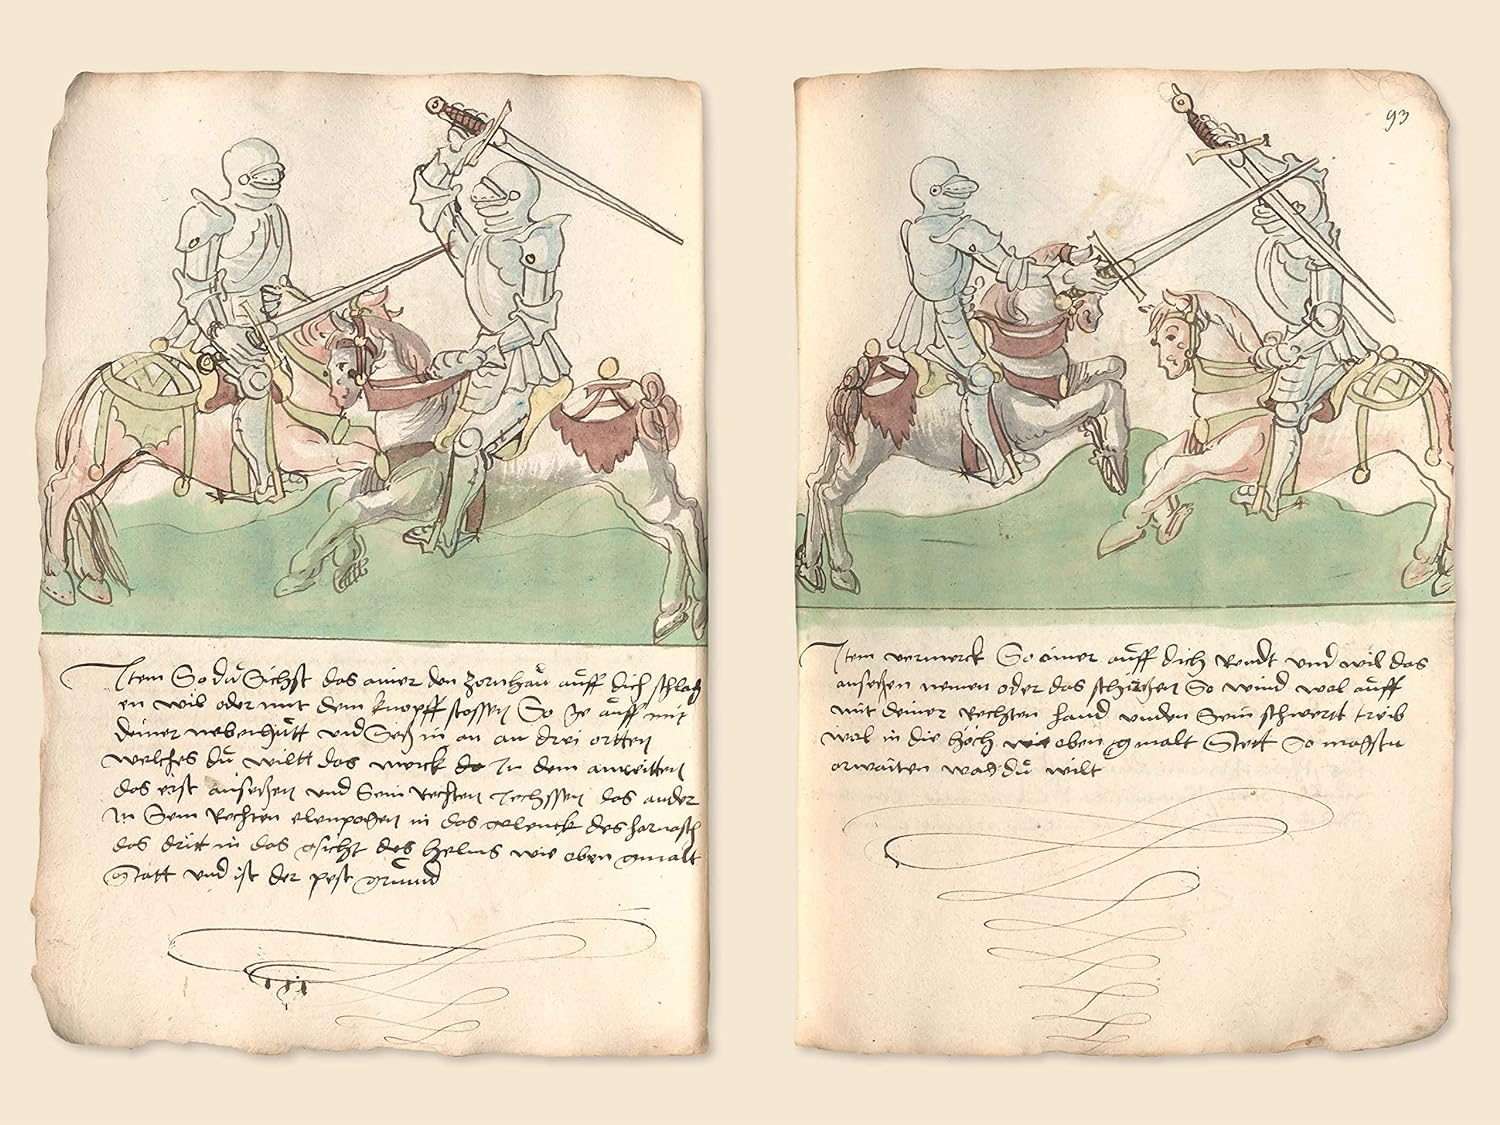 Item So dü Sichst das ainer den zornhaü aüff dich schlag
en wil oder mit dem knopff stossen So ge aüff mit
deiner ueberhütt und Setz in an an drei ortten
welches dü wiltt das merck In dem anreitten
das erst ansetzen und Sein rechten Iechssen das ander
In Sein Rechten elenpogen in das gelenck des harnasch
das dritt in das gsicht des helms wie oben gmalt
Statt und ist der pest gründ
93
Item vermerck So ainer aüff dich Rendt und wil das
ansetzen nemen oder das So wind wol aüff
mit deiner Rechten hand unden Sein schwertt treib
wol in die höch wie oben gmalt Stett So magstu
arwaiten was dü wilt